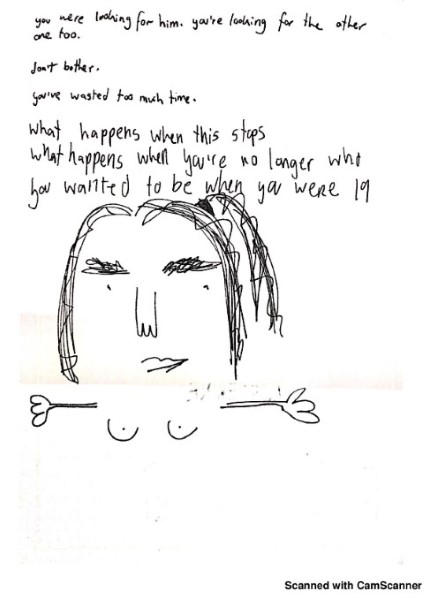 you were looking for him. you're looking for the other
one too.
don't bother.
you've wasted too much time.
what happens when this stops
what happens when you're no longer who
you wanted to be when you were 19
Scanned with CamScanner